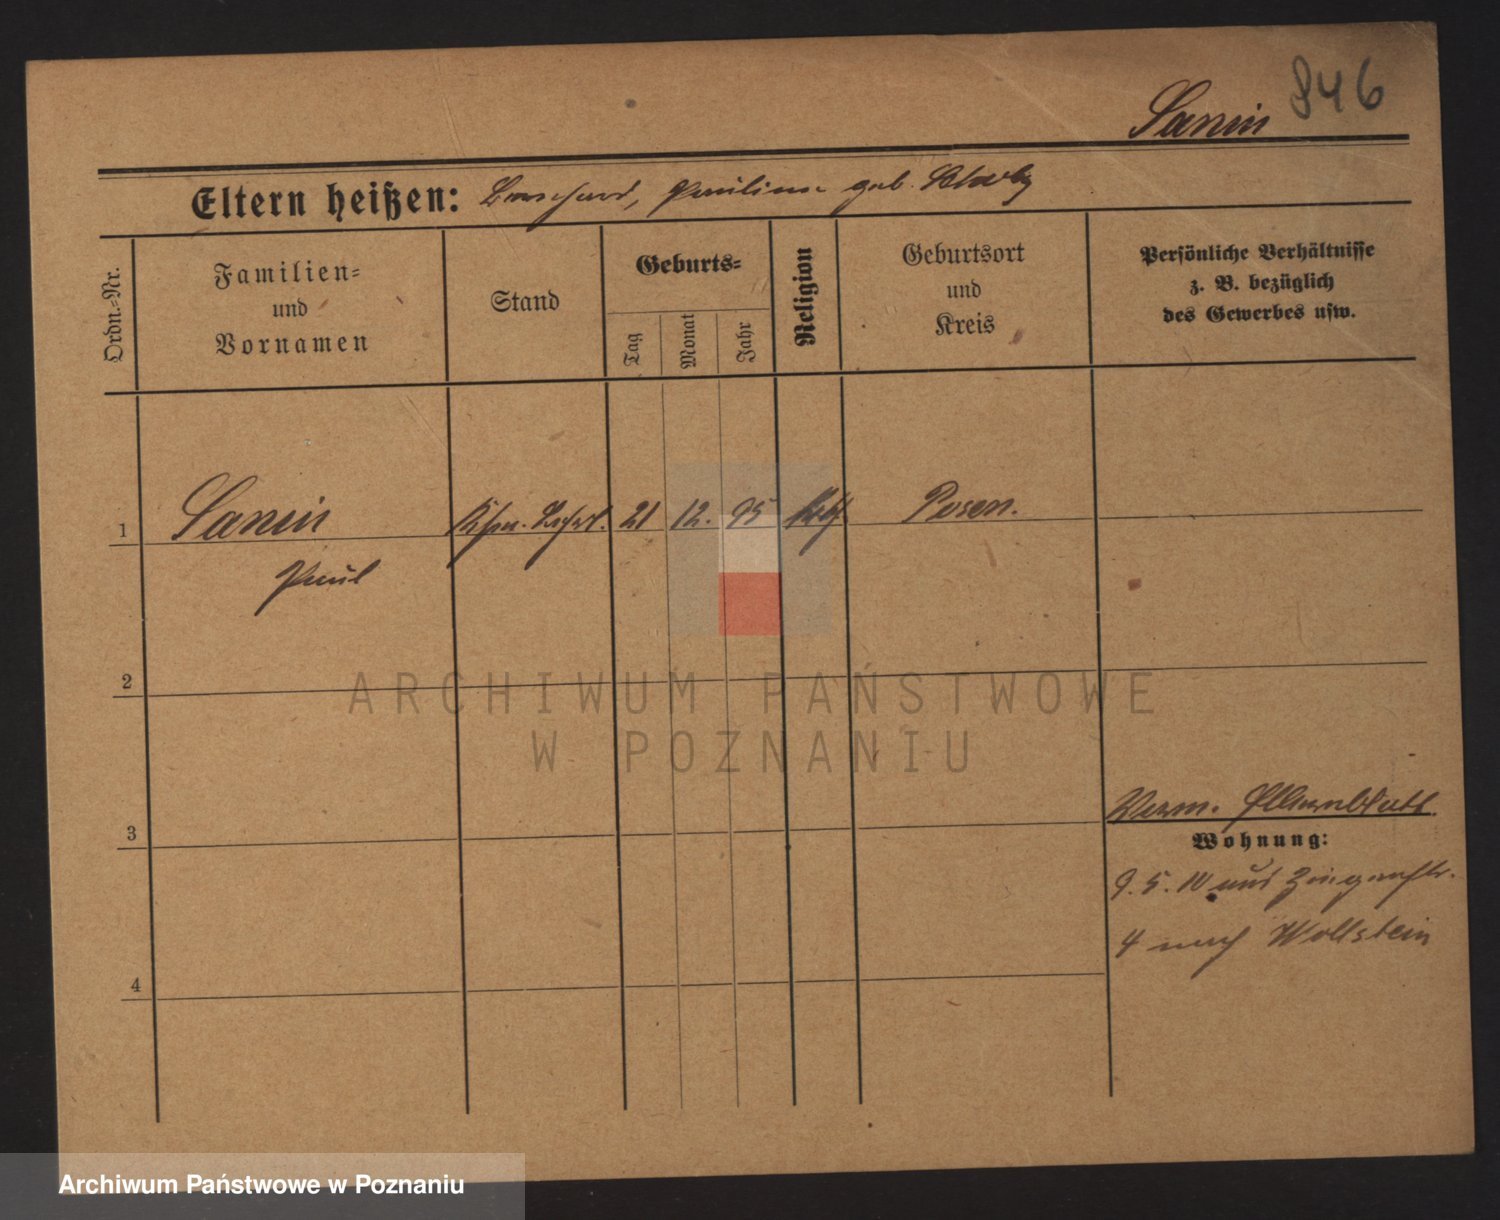 846
Sanin
Eltern heißen: Bernhard, Pauline geb.
Ordn.-Nr.
Familien-
und
Vornamen
Stand
Geburts-
Tag
Monat
Jahr
Religion
Geburtsort
und
Kreis
Persönliche Verhältnisse
z. B. bezüglich
des Gewerbes usw.
1 Sanin 21 12. 95 kath. Posen.
Paul
2
ARCHIWUM PAŃSTWOWE
W POZNANIU
3
Verm.
Wohnung:
9. 5. 10 aus
4 nach Wollstein
4
Archiwum Państwowe w Poznaniu